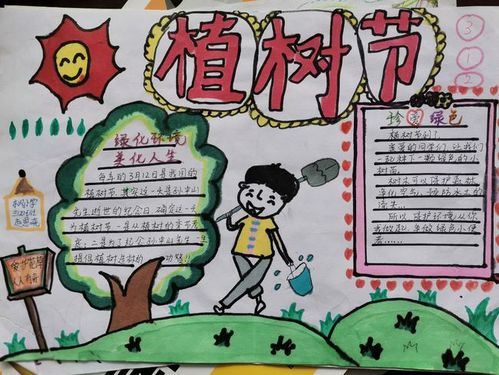 植树节
3
1
2
绿化环境
美化人生
每年的3月12日是我们的
植树节,其实这一天是孙中山
先生逝世的纪念日,确定这一天
为植树节,一是从植树的季节考
虑,二是为了纪念孙中山先生
提倡植树造林的功勋!
珍爱绿色
植树节到了,
亲爱的同学们,让我们
一起种下一颗绿色的小
树苗。
树木可以保护森林,
净化空气,防防水土的
流失……
所以,保护环境从你
我做起,争做绿色小使
者……
人人有责